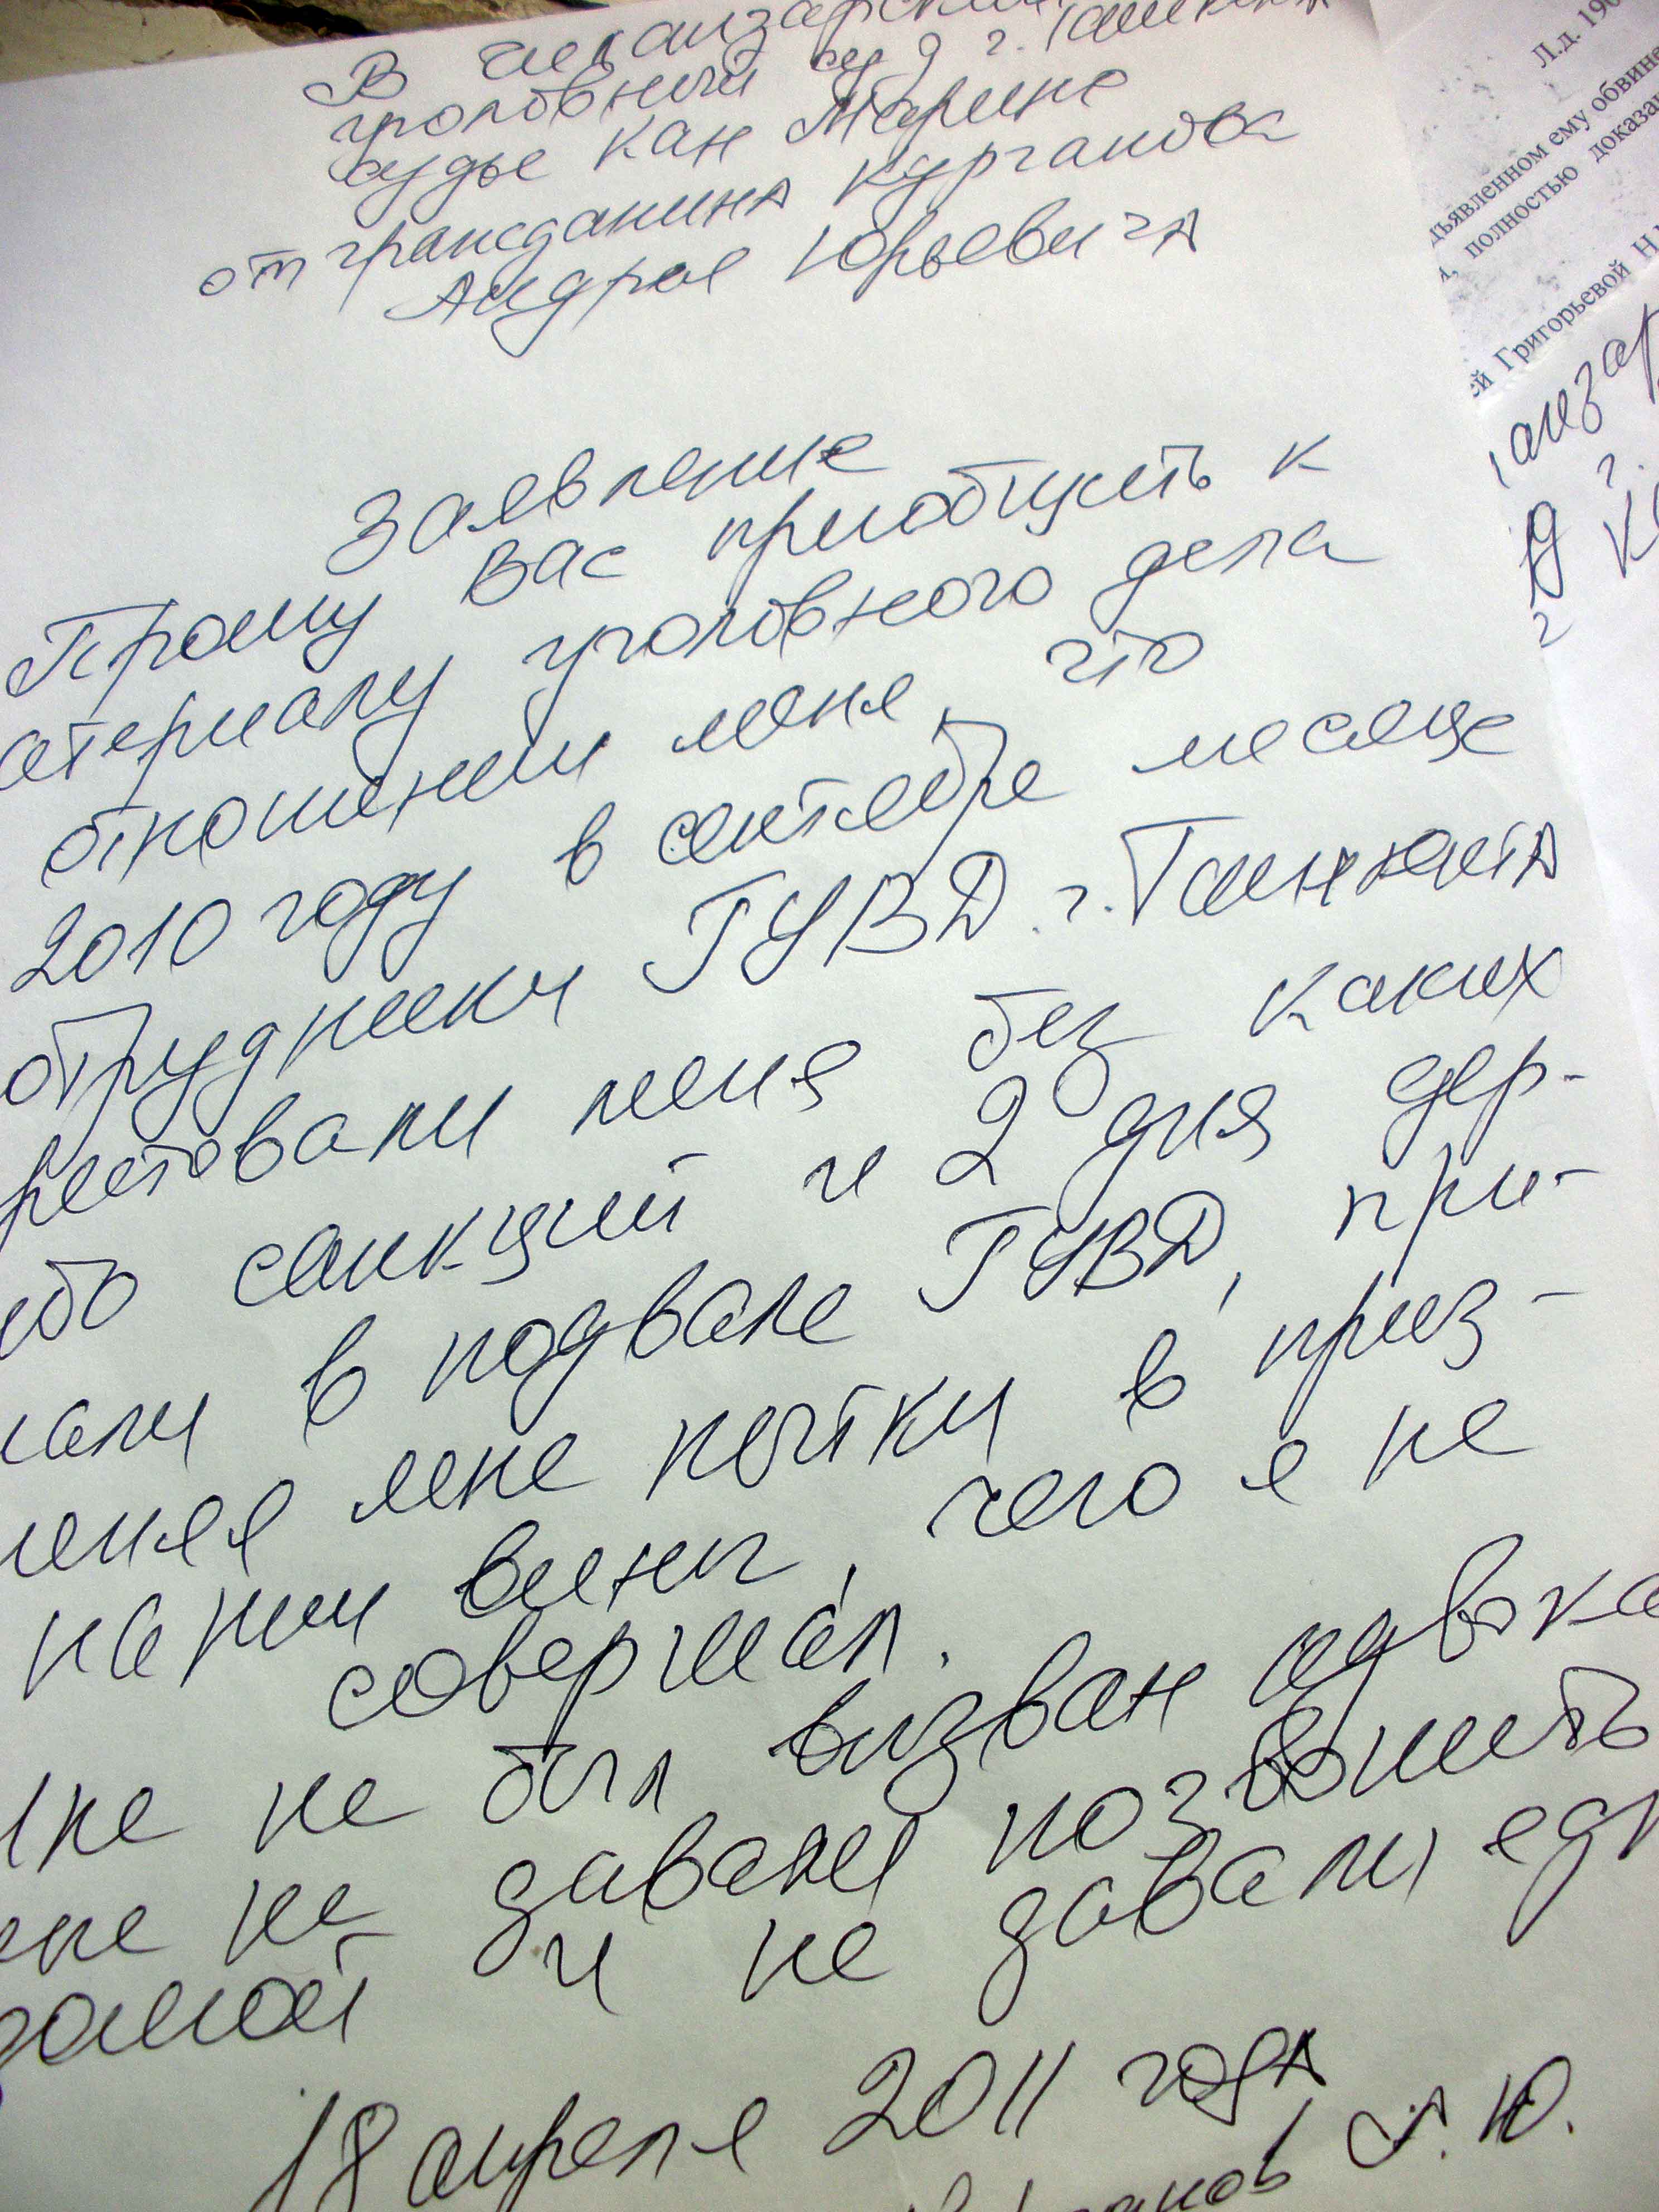 В чиланзарский
уголовный суд г. Ташкента
судье Кан Марине
от гражданина Курганова
Андрея Юрьевича
Заявление
Прошу Вас приобщить к
атериалу уголовного дела
отношении меня, что
2010 году в сентябре месяце
отрудники ГУВД г. Ташкента
рестовали меня без каких
ибо санкций и 2 дня дер-
али в подвале ГУВД, при-
меняя мне пытки в приз-
нании вины, чего я не
совершал.
не не был вызван адвока
не не давали позвонить
домой и не давали еды
18 апреля 2011 года
анов А.Ю.
Л.д. 190
дъявленном ему обвине
полностью доказан
ей Григорьевой Н.
анзар
г.